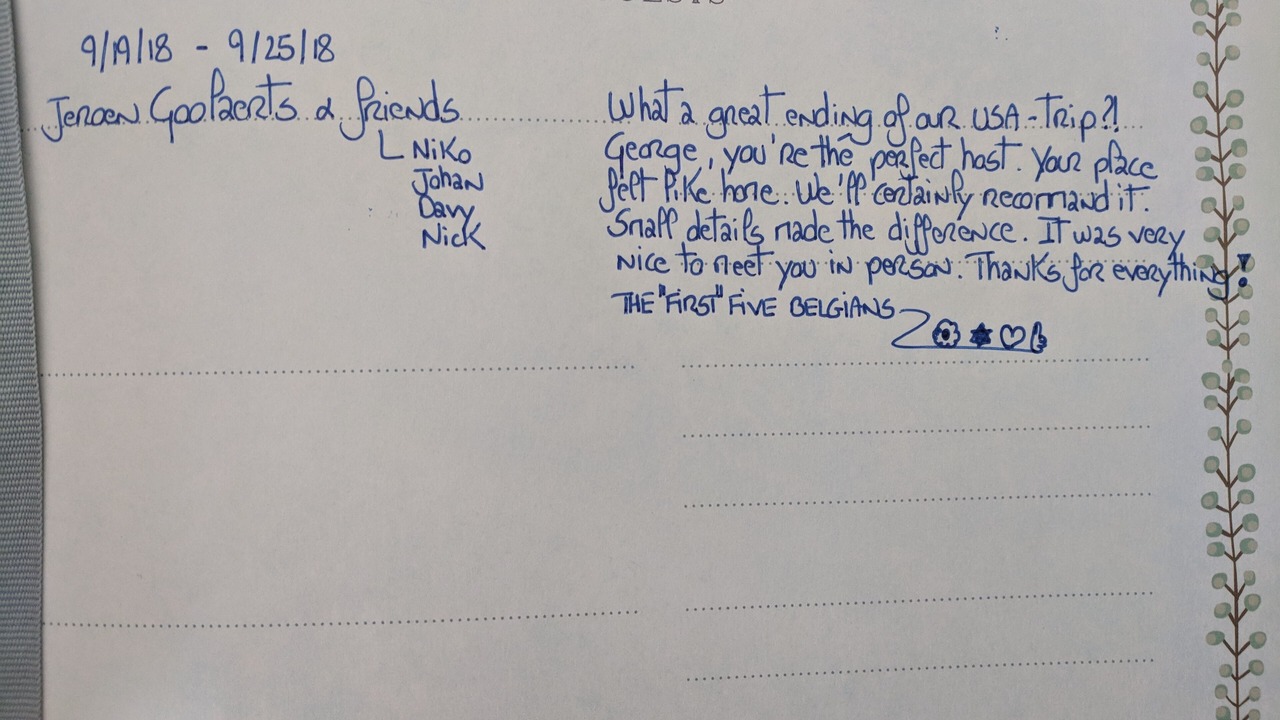 9/19/18 - 9/25/18
Jeroen Goolaerts & friends
Niko
Johan
Davy
Nick
What a great ending of our USA-Trip?!
George, you're the perfect host. Your place
felt like home. We'll certainly recommand it.
Small details made the difference. It was very
nice to meet you in person. Thanks for everything!
THE "FIRST" FIVE BELGIANS